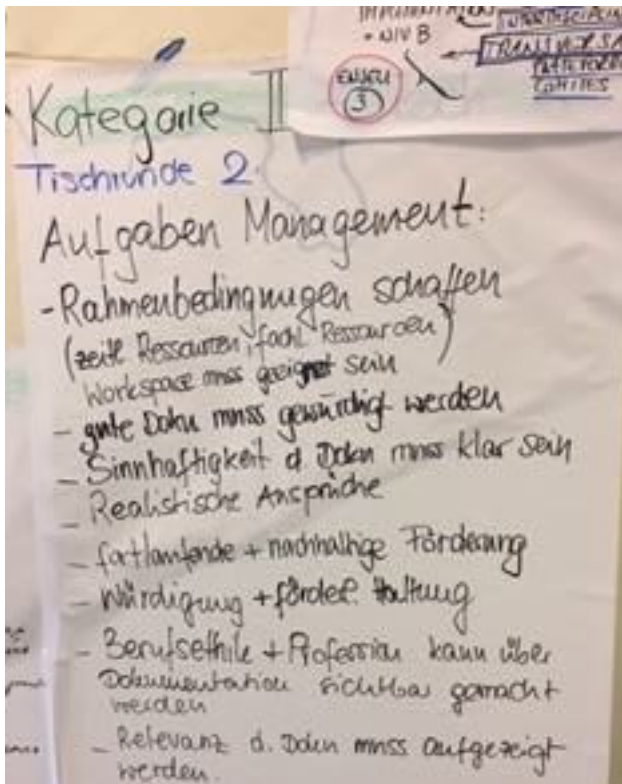 + NIV B
ENJEU
3
Kategorie II
Tischrunde 2
Aufgaben Management:
- Rahmenbedingungen schaffen
(zeitl Ressourcen, fachl Ressourcen)
Workspace muss geeignet sein
- gute Doku muss gewürdigt werden
- Sinnhaftigkeit d Doku muss klar sein
- Realistische Ansprüche
- fortlaufende + nachhaltige Förderung
- Würdigung + förderl. Haltung
- Berufsethik + Profession kann über
Dokumentation sichtbar gemacht
werden
- Relevanz d. Doku muss aufgezeigt
werden.